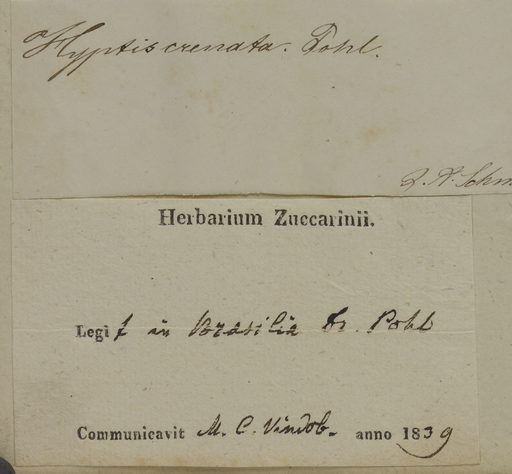 Hyptis crenata. Pohl.
J. A. Schm
Herbarium Zuccarinii.
Legit in Brasilia Dr. Pohl
Communicavit M. C. Vindob. anno 1839